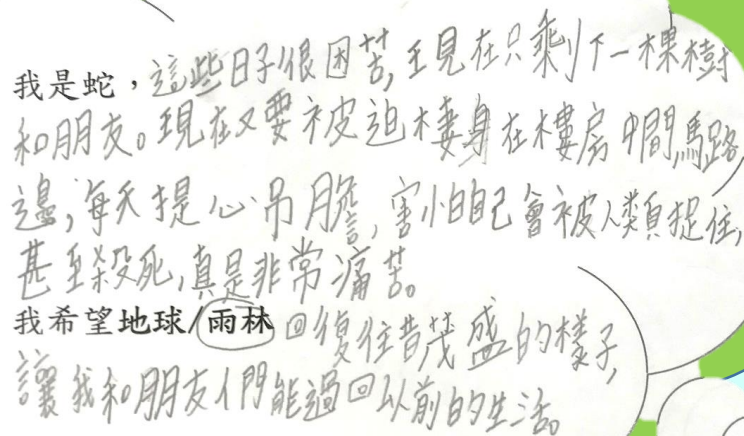 我是蛇，這些日子很困苦,現在只剩下一棵樹
和朋友。現在又要被迫棲身在樓房中間,馬路
邊,每天提心吊膽,害怕自己會被人類捉住,
甚至殺死,真是非常痛苦。
我希望地球/雨林回復往昔茂盛的樣子,
讓我和朋友們能過回以前的生活。